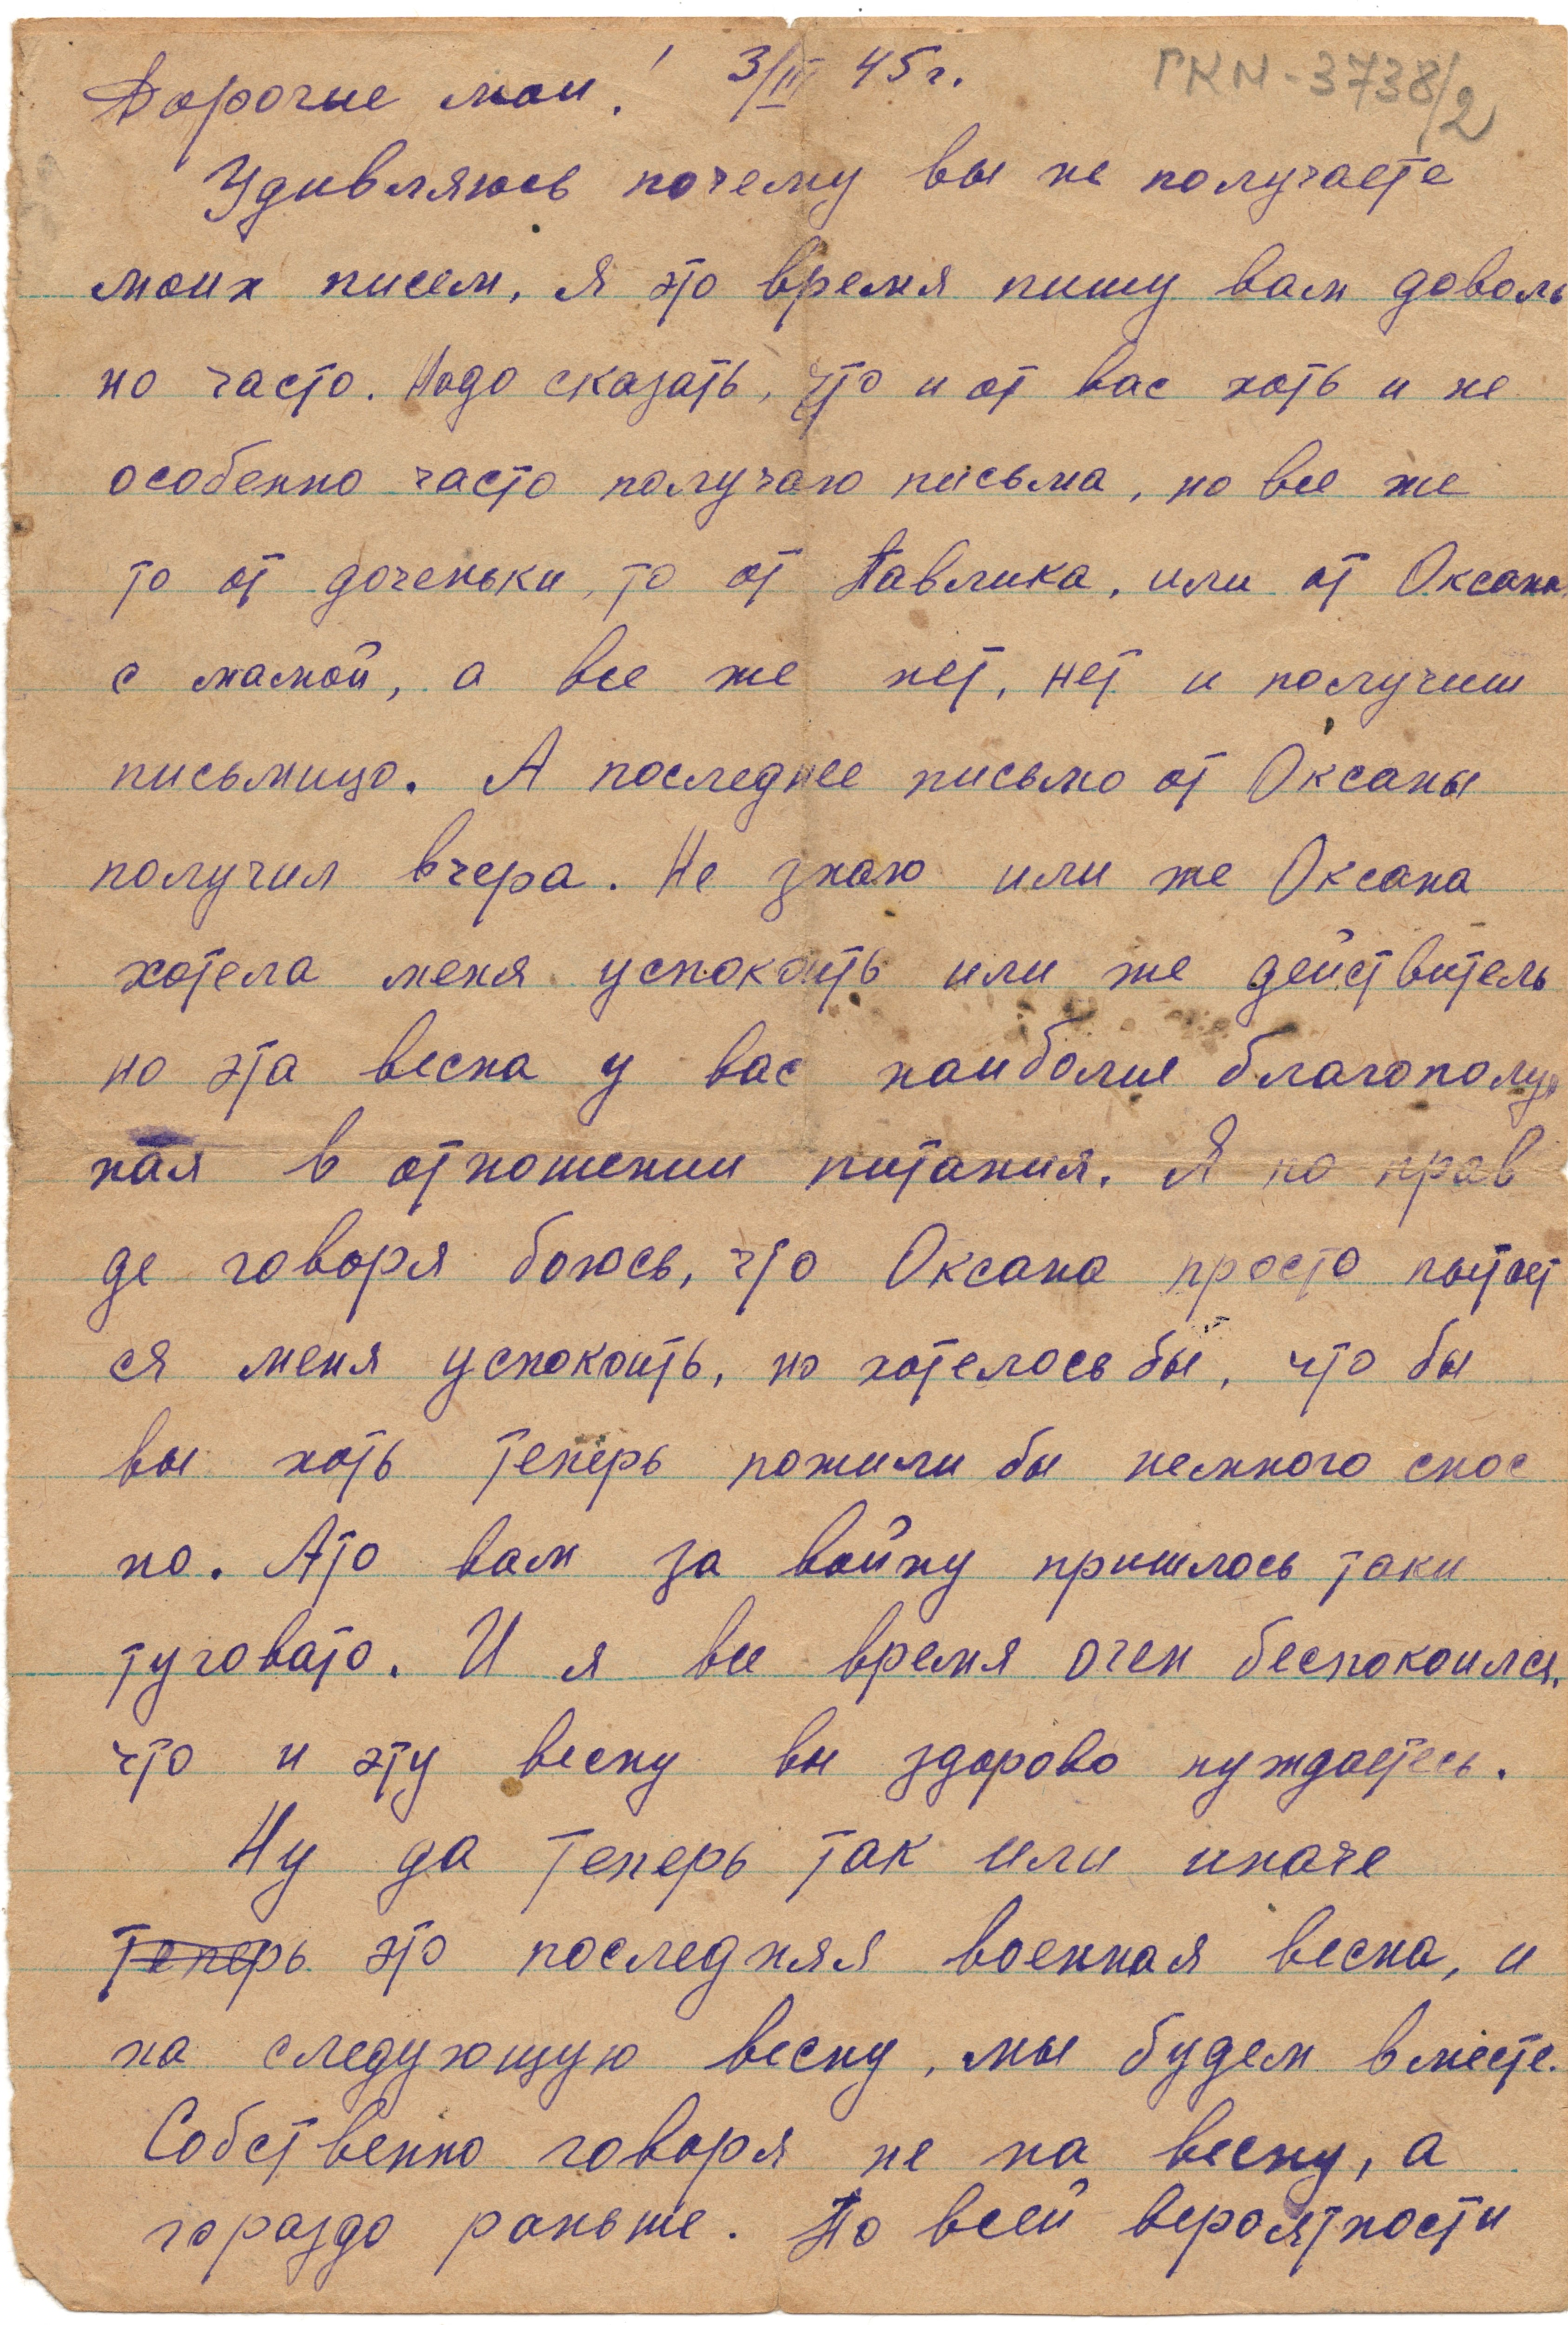 Дорогие мои! 3/III 45 г. ГКМ-3738/2
Удивляюсь почему вы не получаете
моих писем, я это время пишу вам доволь
но часто. Надо сказать, что и от вас хоть и не
особенно часто получаю письма, но все же
то от доченьки, то от Павлика, или от Оксаны
с мамой, а все же нет, нет и получиш
письмицо. А последнее письмо от Оксаны
получил вчера. Не знаю или же Оксана
хотела меня успокоить или же действитель
но эта весна у вас наиболие благополуч
ная в отношении питания. Я по прав
де говоря боюсь, что Оксана просто пытает
ся меня успокоить, но хотелось бы, что бы
вы хоть теперь пожили бы немного снос
но. Ато вам за войну пришлось таки
туговато. И я все время очен беспокоился,
что и эту весну вы здорово нуждаетесь.
Ну да теперь так или иначе
теперь это последняя военная весна, и
на следующую весну, мы будем вместе.
Собственно говоря не на весну, а
гораздо раньше. По всей вероятности